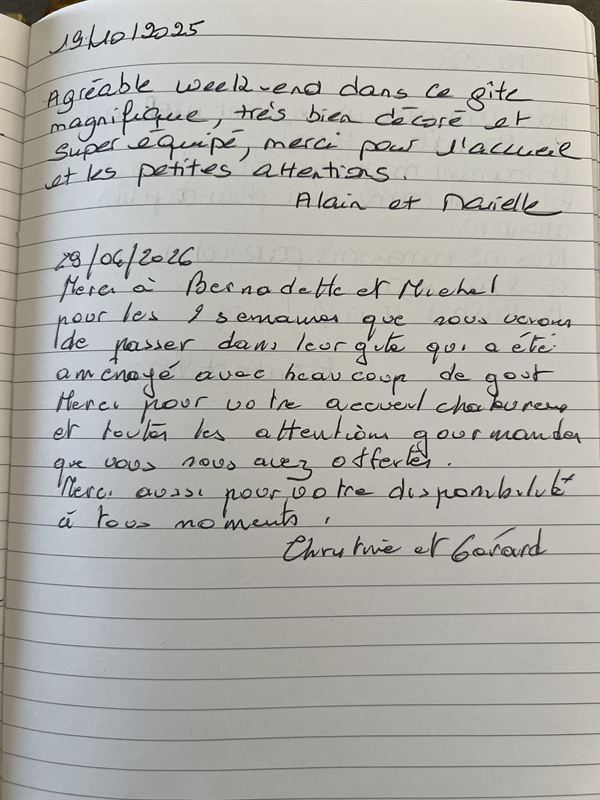 19/10/2025
Agréable week-end dans ce gîte
magnifique, très bien décoré et
super équipé, merci pour l'accueil
et les petites attentions.
Alain et Marielle
29/06/2026
Merci à Bernadette et Michel
pour les 2 semaines que nous venons
de passer dans leur gite qui a été
aménagé avec beaucoup de gout
Merci pour votre accueil chaleureux
et toutes les attentions gourmandes
que vous nous avez offertes.
Merci aussi pour votre disponibilité
à tous moments.
Christine et Gérard